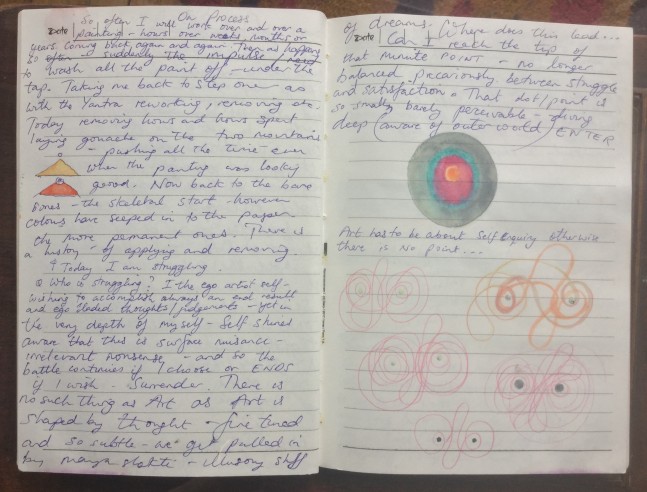 On Process
So, often I will work over and over a
Date painting - hours over weeks months or
years. Coming back again and again. Then as happens
so often suddenly the impulse
to wash all the paint off - under the
tap. Taking me back to step one as
with the Yantra reworking, removing etc.
Today removing hours and hours spent
laying gouache on the two mountains
- pushing all the time even
when the painting was looking
good. Now back to the bare
bones - the skeletal start - however
colours have seeped in to the paper.
the more permanent ones. There is
a history of applying and removing.
Today I am struggling.
Who is struggling? I the ego artist self-
wishing to accomplish always an end result
and ego bladed thoughts/judgements - yet in
the very depth of myself - Self shines
aware that this is surface nuisance -
irrelevant nonsense - and so the
battle continues if I choose or ENDS
if I wish. Surrender. There is
no such thing as Art as Art is
shaped by thought - fine tuned
and so subtle - we get pulled in
by maya shakti - illusory stuff
of dreams. Where does this lead...
Date Can I reach the tip of
that minute POINT - no longer
balanced precariously between struggle
and satisfaction. That dot/point is
so small, barely perceivable - diving
deep (aware of outer world) ENTER
Art has to be about Self Enquiry otherwise
there is No point...